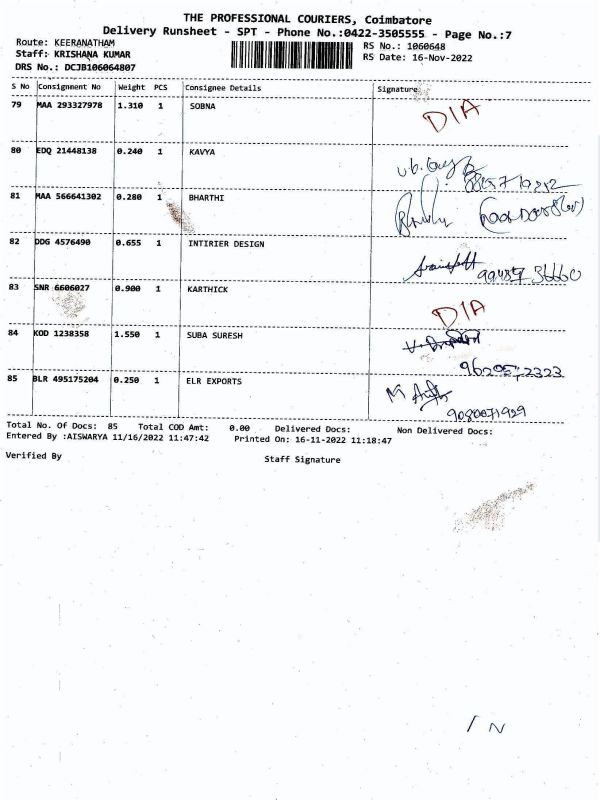 THE PROFESSIONAL COURIERS, Coimbatore
Delivery Runsheet - SPT - Phone No.:0422-3505555 - Page No.:7
Route: KEERANATHAM
RS No.: 1060648
Staff: KRISHANA KUMAR
RS Date: 16-Nov-2022
DRS No.: DCJB106064807
S No Consignment No Weight PCS Consignee Details Signature
79 MAA 293327978 1.310 1 SOBNA DIA
80 EDQ 21448138 0.240 1 KAVYA
81 MAA 566641302 0.280 1 BHARTHI
82 DDG 4576490 0.655 1 INTIRIER DESIGN
83 SNR 6606027 0.900 1 KARTHICK DIA
84 KOD 1238358 1.550 1 SUBA SURESH
85 BLR 495175204 0.250 1 ELR EXPORTS
9080071929
Total No. Of Docs: 85 Total COD Amt: 0.00 Delivered Docs: Non Delivered Docs:
Entered By :AISWARYA 11/16/2022 11:47:42 Printed On: 16-11-2022 11:18:47
Verified By Staff Signature